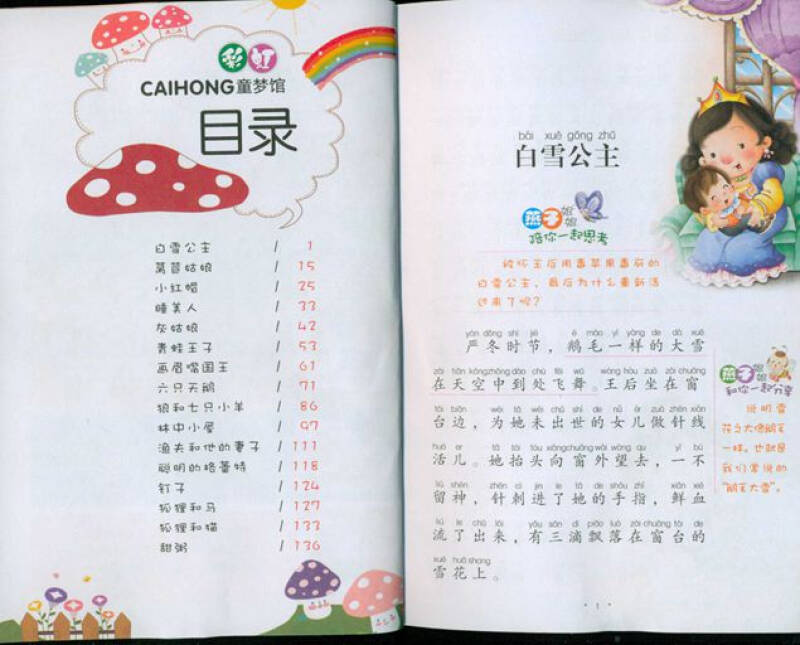 彩虹
CAIHONG童梦馆
目录
白雪公主 / 1
莴苣姑娘 / 15
小红帽 / 25
睡美人 / 33
灰姑娘 / 42
青蛙王子 / 53
画眉嘴国王 / 61
六只天鹅 / 71
狼和七只小羊 / 86
林中小屋 / 97
渔夫和他的妻子 / 111
聪明的格蕾特 / 118
钉子 / 124
狐狸和马 / 127
狐狸和猫 / 133
甜粥 / 136
bái xuě gōng zhǔ
白雪公主
燕子姐姐
陪你一起思考
被坏王后用毒苹果毒死的
白雪公主，最后为什么重新活
过来了呢？
yán dōng shí jié é máo yí yàng de dà xuě
严冬时节，鹅毛一样的大雪
zài tiān kōng zhōng dào chù fēi wǔ wáng hòu zuò zài chuāng
在天空中到处飞舞。王后坐在窗
tái biān wèi tā wèi chū shì de nǚ ér zuò zhēn xiàn
台边，为她未出世的女儿做针线
huó er tā tái tóu xiàng chuāng wài wàng qù yí bù
活儿。她抬头向窗外望去，一不
liú shén zhēn cì jìn le tā de shǒu zhǐ xiān xiě
留神，针刺进了她的手指，鲜血
liú le chū lái yǒu sān dī piāo luò zài chuāng tái de
流了出来，有三滴飘落在窗台的
xuě huā shang
雪花上。
燕子姐姐
和你一起分享
说明雪
花之大像鹅毛
一样。也就是
我们常说的
“鹅毛大雪”。
· 1 ·